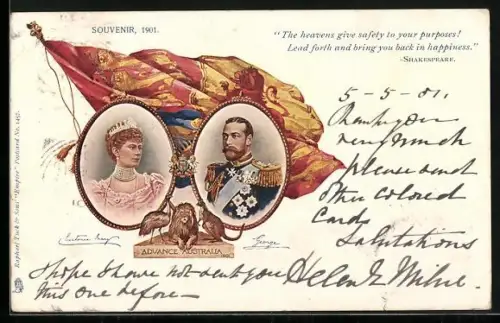 SOUVENIR, 1901.
"The heavens give safety to your purposes!
Lead forth and bring you back in happiness."
-SHAKESPEARE.
5-5-01.
Thank you
very much
please send
other colored
Cards
Salutations
Victoria Mary
George
ADVANCE AUSTRALIA
I hope I have not sent you
this one before—
Helen Milne.
Raphael Tuck & Sons' "Empire" Postcard No. 1457.